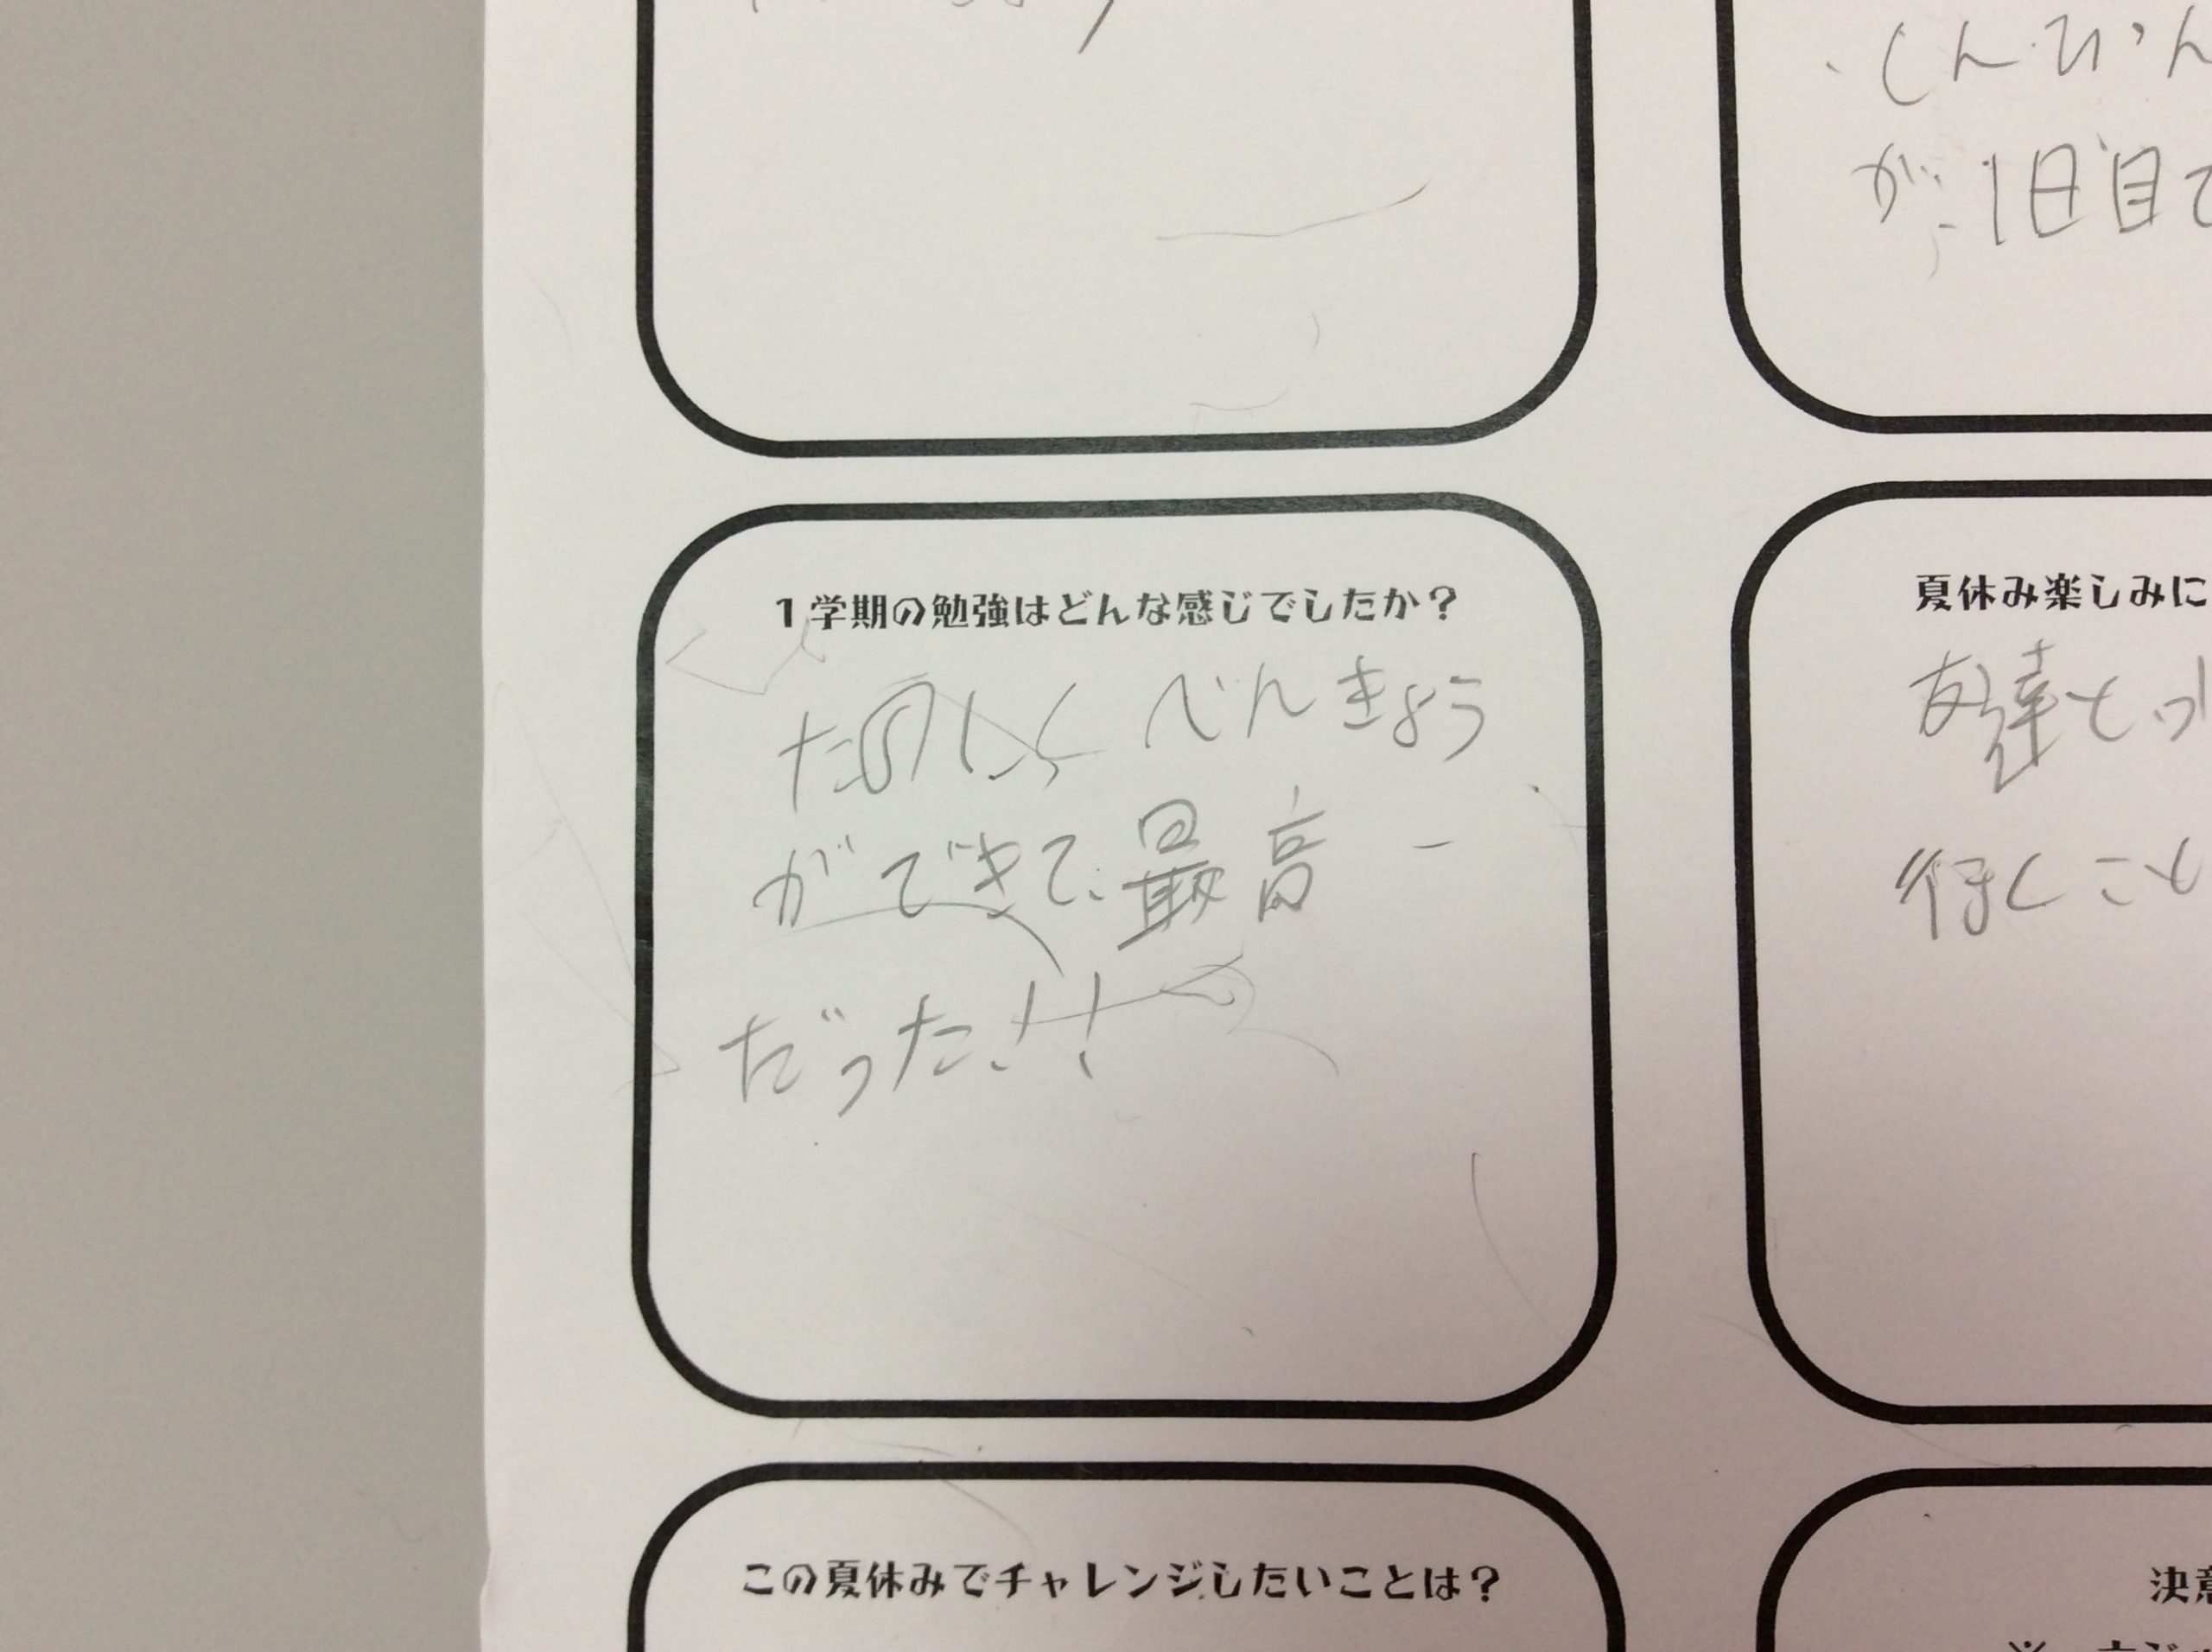 しんぴん
が1日目で
1学期の勉強はどんな感じでしたか？
たのしくべんきょう
ができて、最高
だった！！
夏休み楽しみに
友達と
行くこと
この夏休みでチャレンジしたいことは？
決意